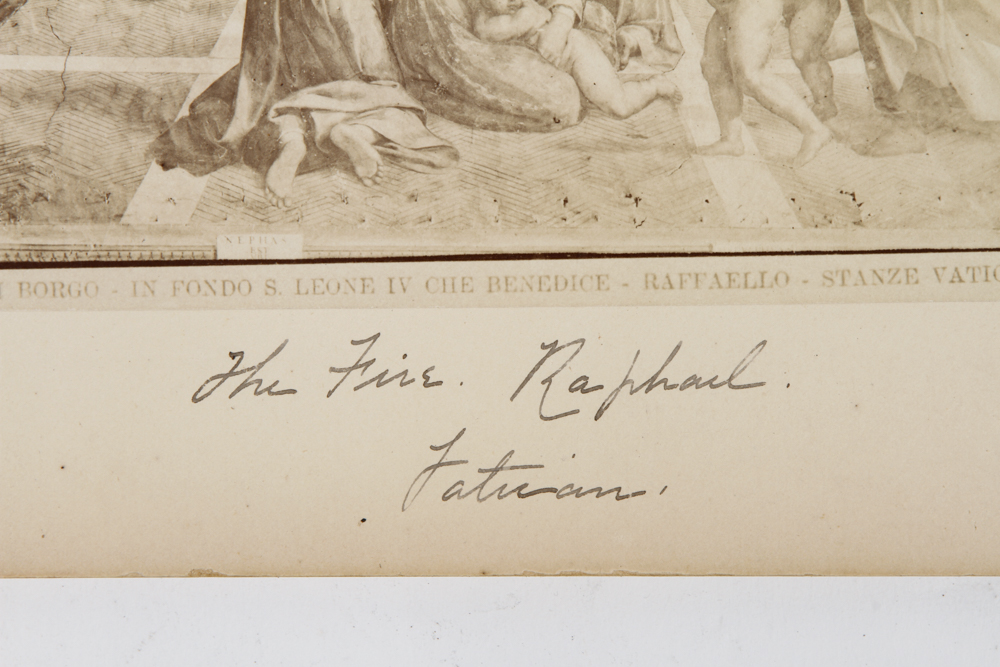 NEPHAS
EST
I BORGO - IN FONDO S. LEONE IV CHE BENEDICE - RAFFAELLO - STANZE VATIC
The Fire. Raphael.
Vatican.